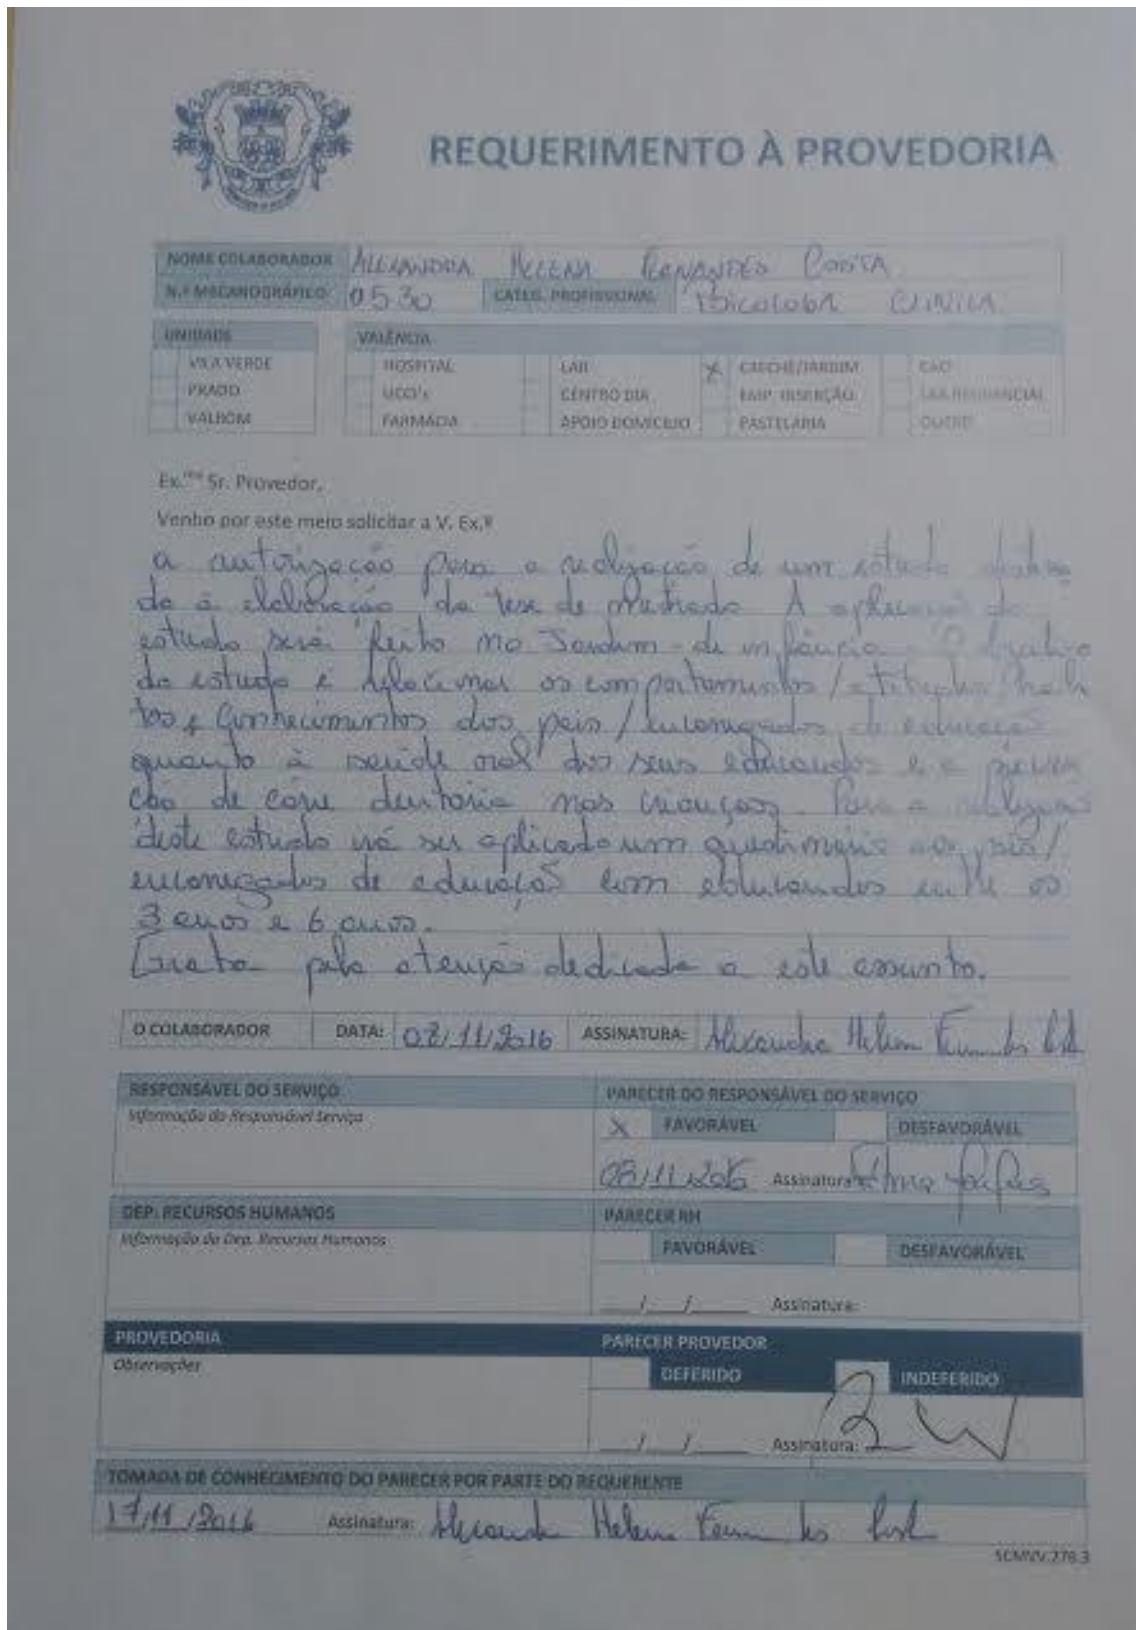 REQUERIMENTO À PROVEDORIA
NOME COLABORADOR ALEXANDRA HELENA FERNANDES COSTA
N.º MECANOGRÁFICO 0530 CATEG. PROFISSIONAL PSICOLOGA CLINICA
UNIDADE VALÊNCIA
VILA VERDE HOSPITAL LAR X CRECHE/JARDIM CAO
PRADO UCO's CENTRO DIA EMP. INSERÇÃO LAR RESIDENCIAL
VALBOM FARMÁCIA APOIO DOMICILIO PASTELARIA OUTRO
Ex.mo Sr. Provedor,
Venho por este meio solicitar a V. Ex.ª
a autorização para a realização de um estudo destina
do à elaboração da tese de mestrado. A aplicação do
estudo será feito no Jardim-de infância. O objetivo
do estudo é relacionar os comportamentos/atitudes, hábi
tos e conhecimentos dos pais/encarregados de educação
quanto à saúde oral dos seus educandos e a
ção de cárie dentária nas crianças. Para a realização
deste estudo irá ser aplicado um questionário aos pais/
encarregados de educação com educandos entre os
3 anos e 6 anos.
Grata pela atenção dedicada a este assunto.
O COLABORADOR DATA: 02/11/2016 ASSINATURA: Alexandra Helena Fernandes Costa
RESPONSÁVEL DO SERVIÇO PARECER DO RESPONSÁVEL DO SERVIÇO
Informação do Responsável Serviço X FAVORÁVEL DESFAVORÁVEL
03/11/2016 Assinatura:
DEP. RECURSOS HUMANOS PARECER RH
Informação do Dep. Recursos Humanos FAVORÁVEL DESFAVORÁVEL
__/__/____ Assinatura:
PROVEDORIA PARECER PROVEDOR
Observações DEFERIDO INDEFERIDO
__/__/____ Assinatura:
TOMADA DE CONHECIMENTO DO PARECER POR PARTE DO REQUERENTE
17/11/2016 Assinatura: Alexandra Helena Fernandes Costa
SCMVV.278.3